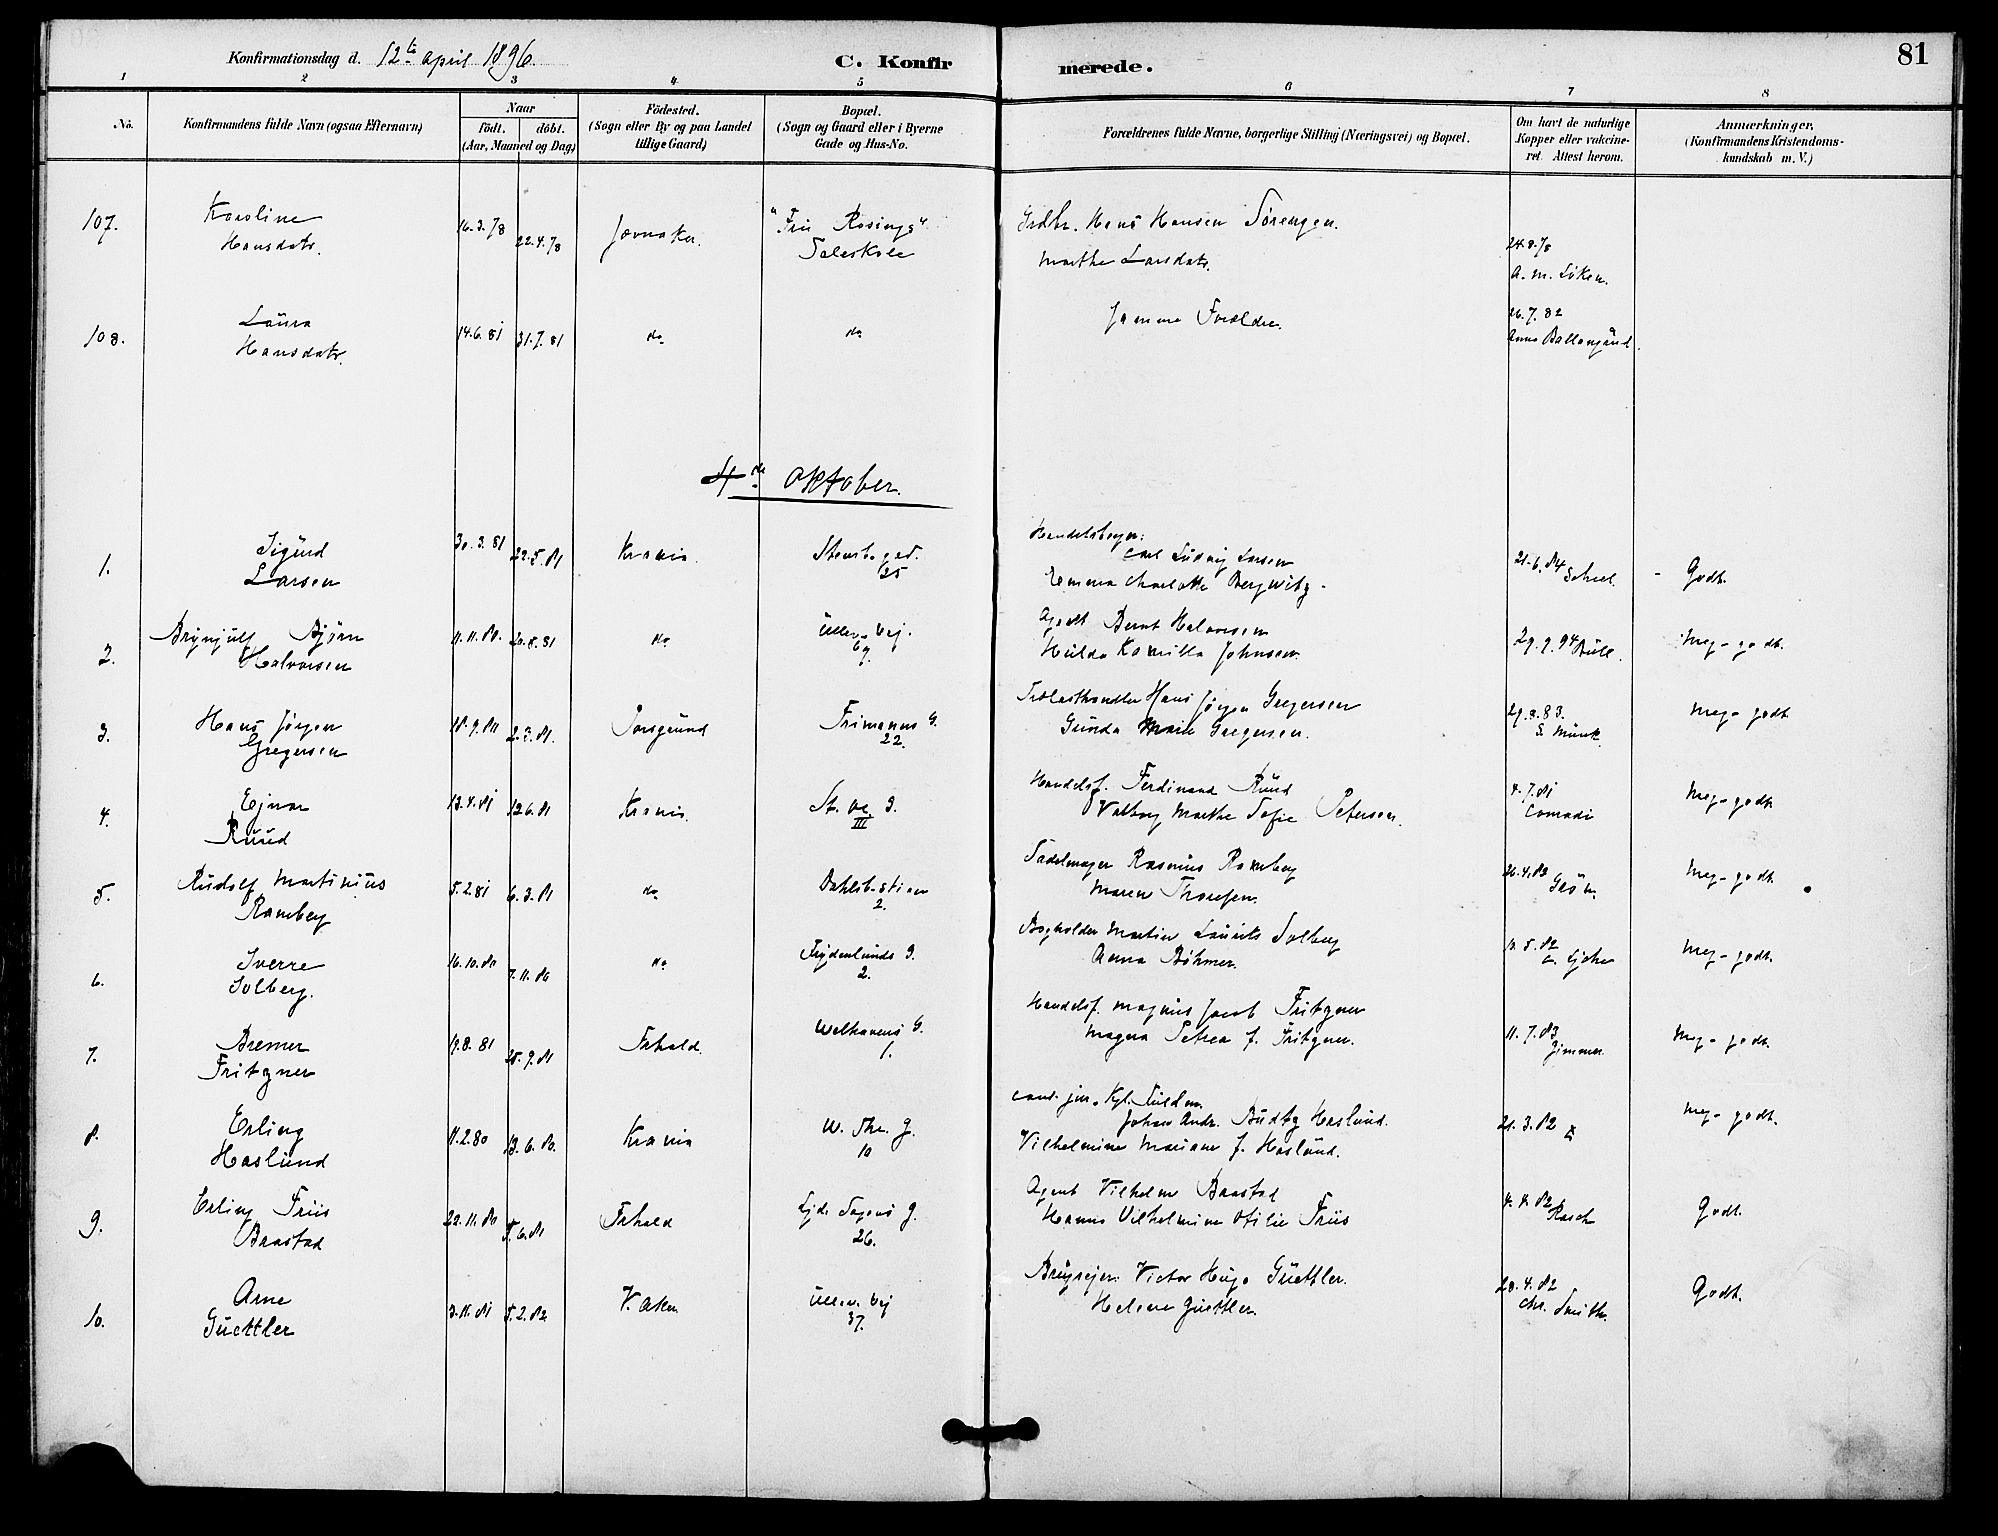 81
Konfirmationsdag d. 12te april 1896. C. Konfirmerede.
1 2 3 4 5 6 7 8
No. Konfirmandens fulde Navn (ogsaa Efternavn) Naar födt. döbt. (Aar, Maaned og Dag) Födested. (Sogn eller By og paa Landet tillige Gaard) Bopæl. (Sogn og Gaard eller i Byerne Gade og Hus-No. Forældrenes fulde Navne, borgerlige Stilling (Næringsvei) og Bopæl. Om havt de naturlige Kopper eller vakcineret. Attest herom. Anmærkninger, (Konfirmandens Kristendomskundskab m. V.)
107. Karoline 16.3.78 22.4.78 Jevnaker "Fru Rosings" Grdbr. Hans Hansen Sørengen.
Hansdatr. Taleskole Marthe Larsdatr. 24.8.78
A. M. Løken.
108. Laura 14.6.81 31.7.81 do do Samme Forældre. 26.7.82
Hansdatr. Anne Ballangrud.
4de Oktober.
1. Sigurd 30.3.81 22.5.81 Krania Stensb. gad. 25 Handelsborger: Carl Ludvig Larsen 21.6.84 Scheel - Godt.
Larsen Emma Charlotte Bergwitz.
2. Brynjulf Bjørn 11.11.80. 20.8.81 do Ullev. Vej. 67. Agent Bernt Halvorsen 29.9.94 Bull. Meg. godt.
Halvorsen Hulda Kamilla Johnsen.
3. Hans Jørgen 18.9.80 2.3.81. Porsgrund Frimanns G. 22. Trælasthandler Hans Jørgen Gregersen 29.8.83. S. Munk. Meg. godt
Gregersen Gunda Marie Gregersen.
4. Ejnar 13.4.81 12.6.81 Krania. St. Ol. G. III Handelsf. Ferdinand Ruud 4.7.81 Conradi Meg. godt
Ruud Valborg Marthe Sofie Petersen.
5. Rudolf Martinius 5.2.81 6.3.81 do Dahlsb.stien 2. Sadelmager Rasmus Ramberg 26.4.82 Meg. godt.
Ramberg Maren Thoresen.
6. Sverre 16.10.80 7.11.80 do Frydenlunds G. 2. Bogholder Martin Laurits Solberg Meg. godt.
Solberg. Anna Bøhmer.
7. Bremer 19.8.81 25.9.81 Frhald. Welhavens G. 1. Handelsf. Magnus Jacob Fritzner 11.7.83 Zimmer. Meg. godt.
Fritzner Magna Petrea f. Fritzner.
8. Erling 11.2.80 13.6.80. Krania W. Thr. G. 10 Cand. jur. Kgl. Fuldm. Johan Andr. Budtz Haslund. 21.3.82 Meg. godt.
Haslund Vilhelmine Mariane f. Haslund.
9. Erling Friis 22.11.80 5.6.81 Frhald Lyd. Sagens G. 26. Agent Vilhelm Baastad 4.4.82 Rasch Godt.
Baastad Hanna Vilhelmine Otilie Friis
10. Arne 3.11.81 5.2.82 V. Aker Ullev. Vej 37. Brugsejer: Victor Hugo Guettler. 28.4.82 Chr. Smith. Godt.
Guettler Helene Guettler.